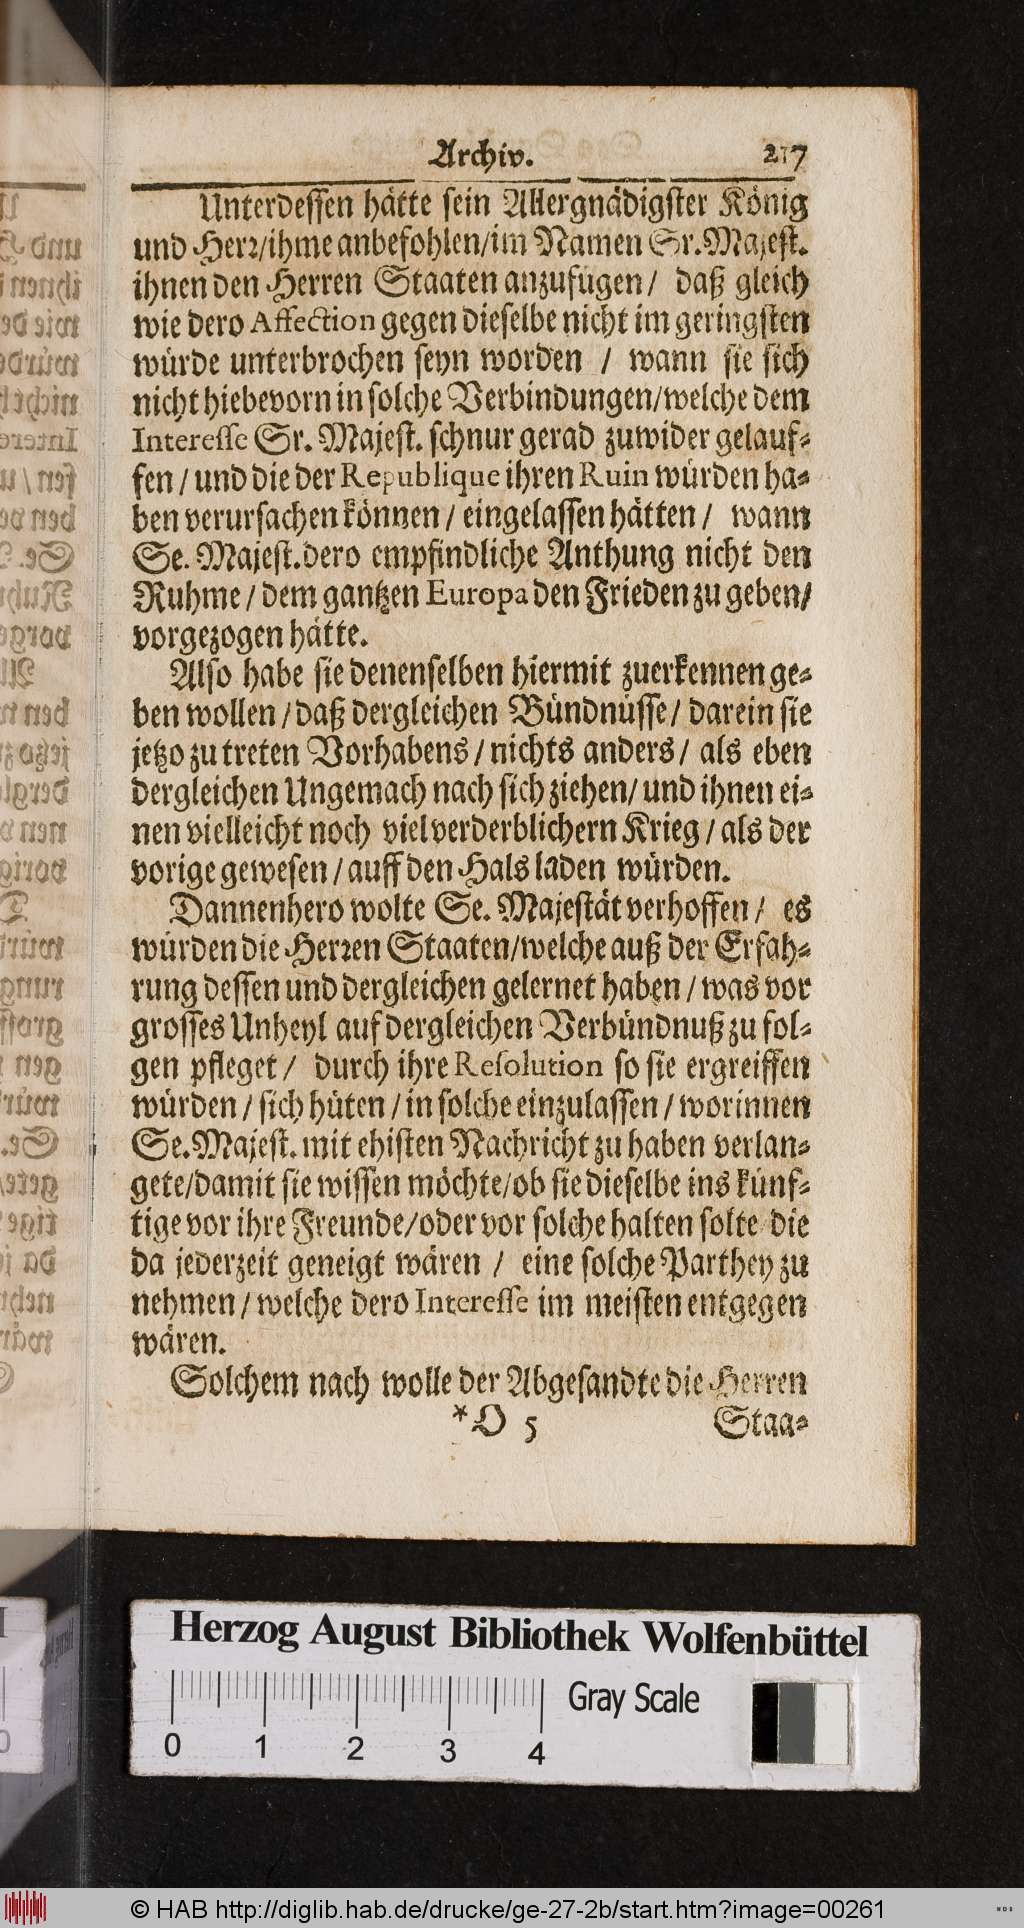 Archiv. 217
Unterdessen hätte sein Allergnädigster König
und Herr/ihme anbefohlen/im Namen Sr. Majest.
ihnen den Herren Staaten anzufügen / daß gleich
wie dero Affection gegen dieselbe nicht im geringsten
würde unterbrochen seyn worden / wann sie sich
nicht hiebevorn in solche Verbindungen/welche dem
Interesse Sr. Majest. schnur gerad zuwider gelauf-
fen / und die der Republique ihren Ruin würden ha-
ben verursachen können / eingelassen hätten / wann
Se. Majest. dero empfindliche Anthung nicht den
Ruhme / dem gantzen Europa den Frieden zu geben/
vorgezogen hätte.
Also habe sie denenselben hiermit zuerkennen ge-
ben wollen / daß dergleichen Bündnüsse / darein sie
jetzo zu treten Vorhabens / nichts anders / als eben
dergleichen Ungemach nach sich ziehen/ und ihnen ei-
nen vielleicht noch viel verderblichern Krieg / als der
vorige gewesen / auff den Hals laden würden.
Dannenhero wolte Se. Majestät verhoffen / es
würden die Herren Staaten/welche auß der Erfah-
rung dessen und dergleichen gelernet haben / was vor
grosses Unheyl auf dergleichen Verbündnuß zu fol-
gen pfleget / durch ihre Resolution so sie ergreiffen
würden / sich hüten / in solche einzulassen / worinnen
Se. Majest. mit ehisten Nachricht zu haben verlan-
gete/damit sie wissen möchte/ob sie dieselbe ins künf-
tige vor ihre Freunde/oder vor solche halten solte die
da jederzeit geneigt wären / eine solche Parthey zu
nehmen / welche dero Interesse im meisten entgegen
wären.
Solchem nach wolle der Abgesandte die Herren
*O 5 Staa-
Herzog August Bibliothek Wolfenbüttel
0 1 2 3 4 Gray Scale
© HAB http://diglib.hab.de/drucke/ge-27-2b/start.htm?image=00261